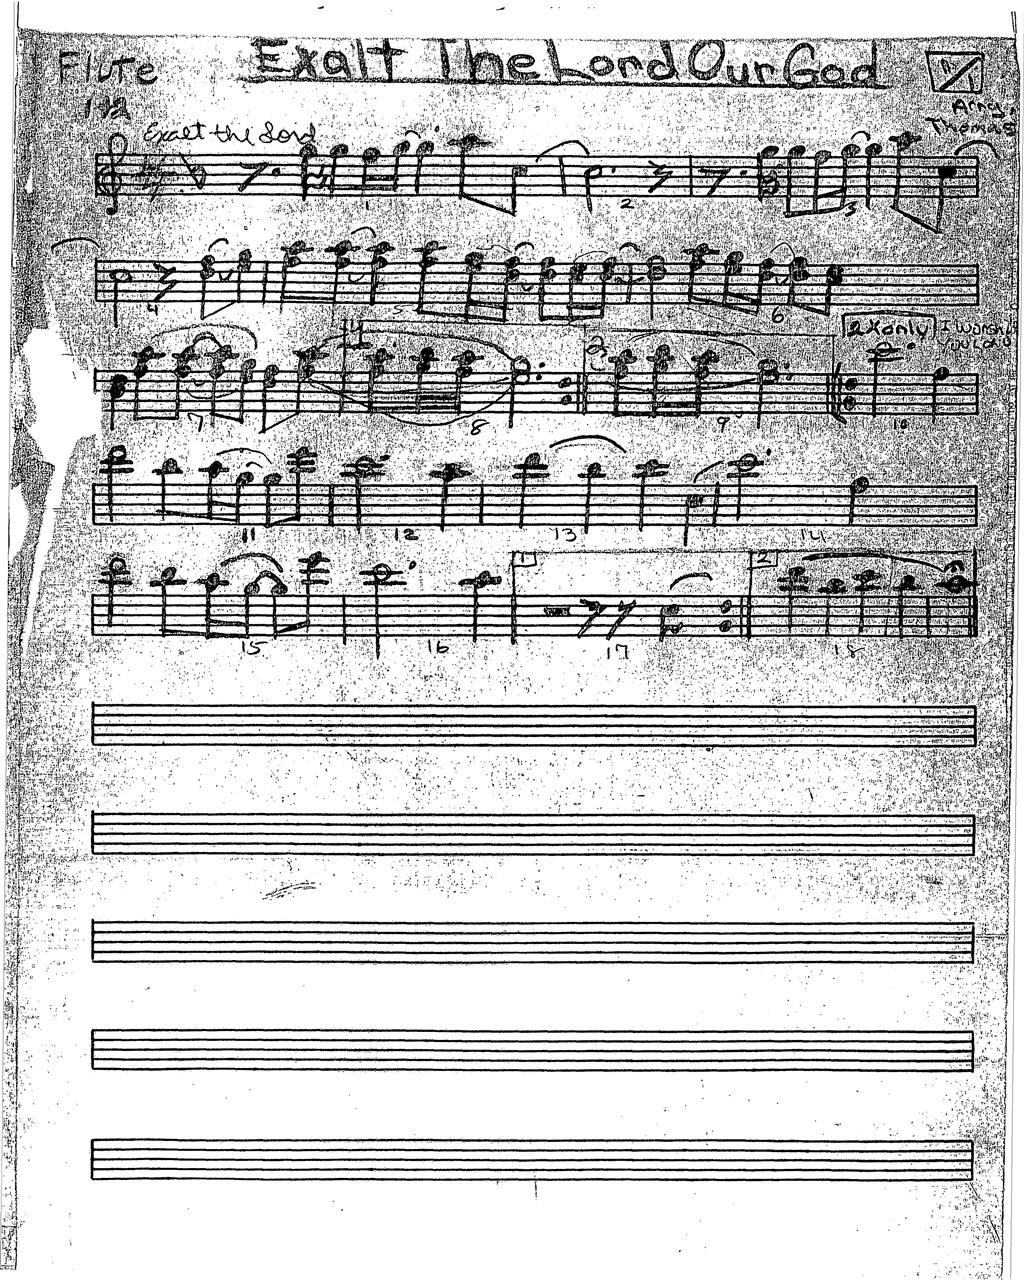 Flute
Exalt The Lord Our God
1+2
Arng.
Thomas
Exalt the Lord
1
2
3
4
5
6
2X only
I Worship
You Lord
7
8
9
10
11
12
13
14
1
2
15
16
17
18